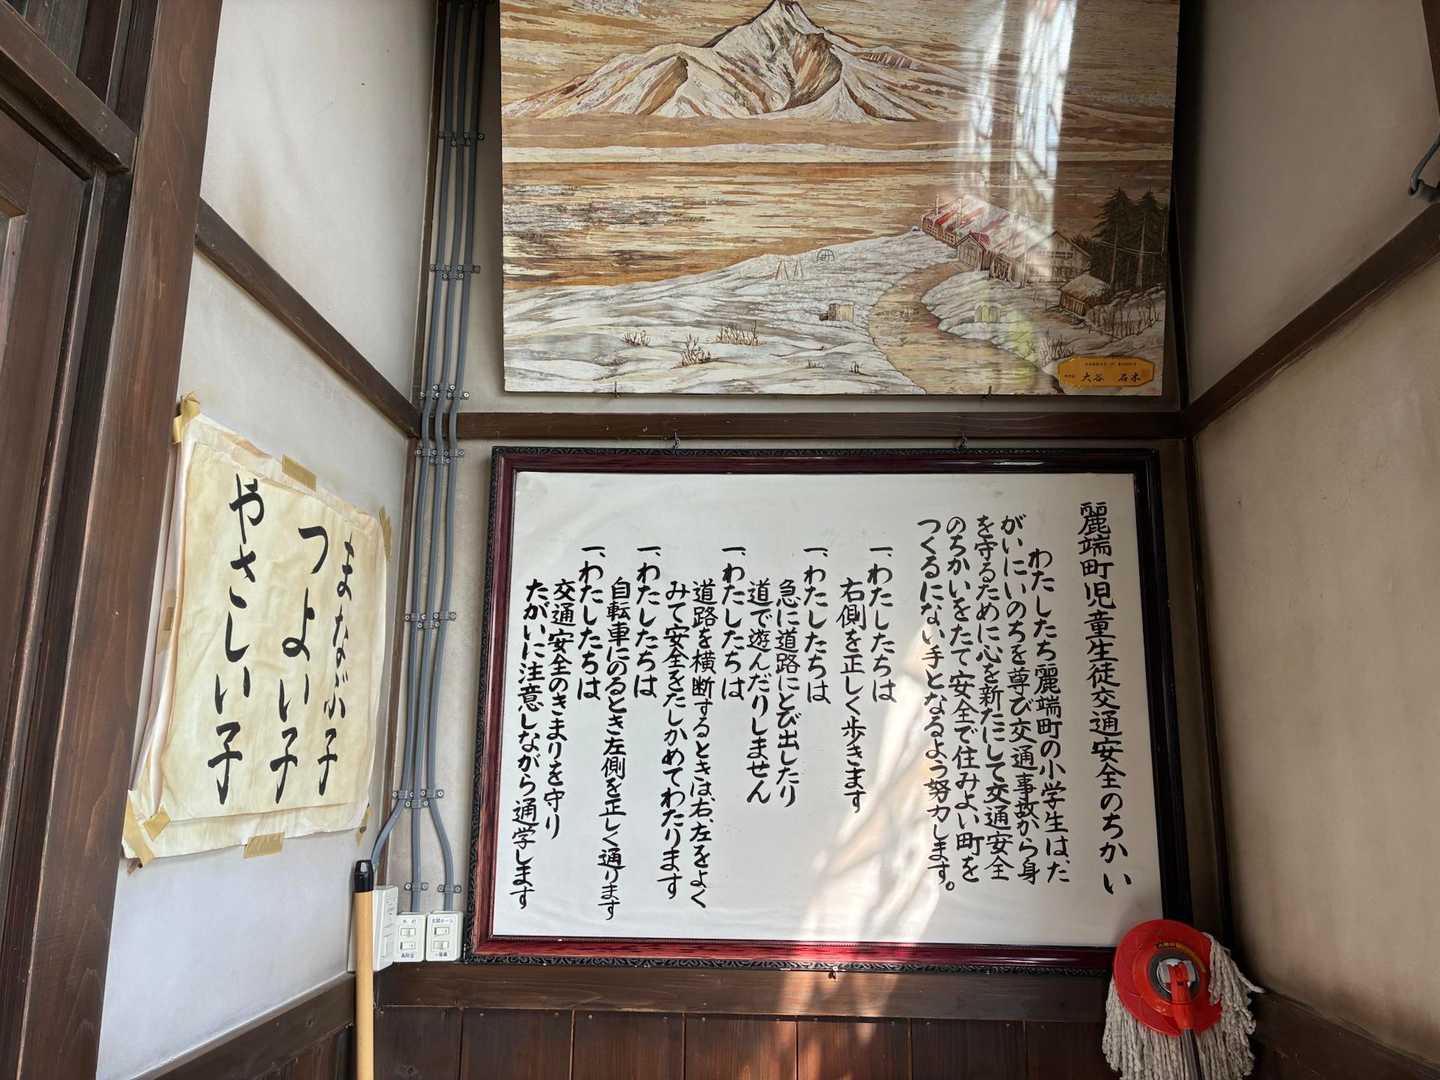 麗端町児童生徒交通安全のちかい
わたしたち麗端町の小学生は、た
がいにいのちを尊び交通事故から身
を守るために心を新たにして交通安全
のちかいをたて安全で住みよい町を
つくるにない手となるよう努力します。
一、わたしたちは
右側を正しく歩きます
一、わたしたちは、
急に道路にとび出したり
道で遊んだりしません
一、わたしたちは、
道路を横断するときは、右、左をよく
みて安全をたしかめてわたります
一、わたしたちは
自転車にのるとき左側を正しく通ります
一、わたしたちは、
交通安全のきまりを守り
たがいに注意しながら通学します
まなぶ子
つよい子
やさしい子
大谷 石木